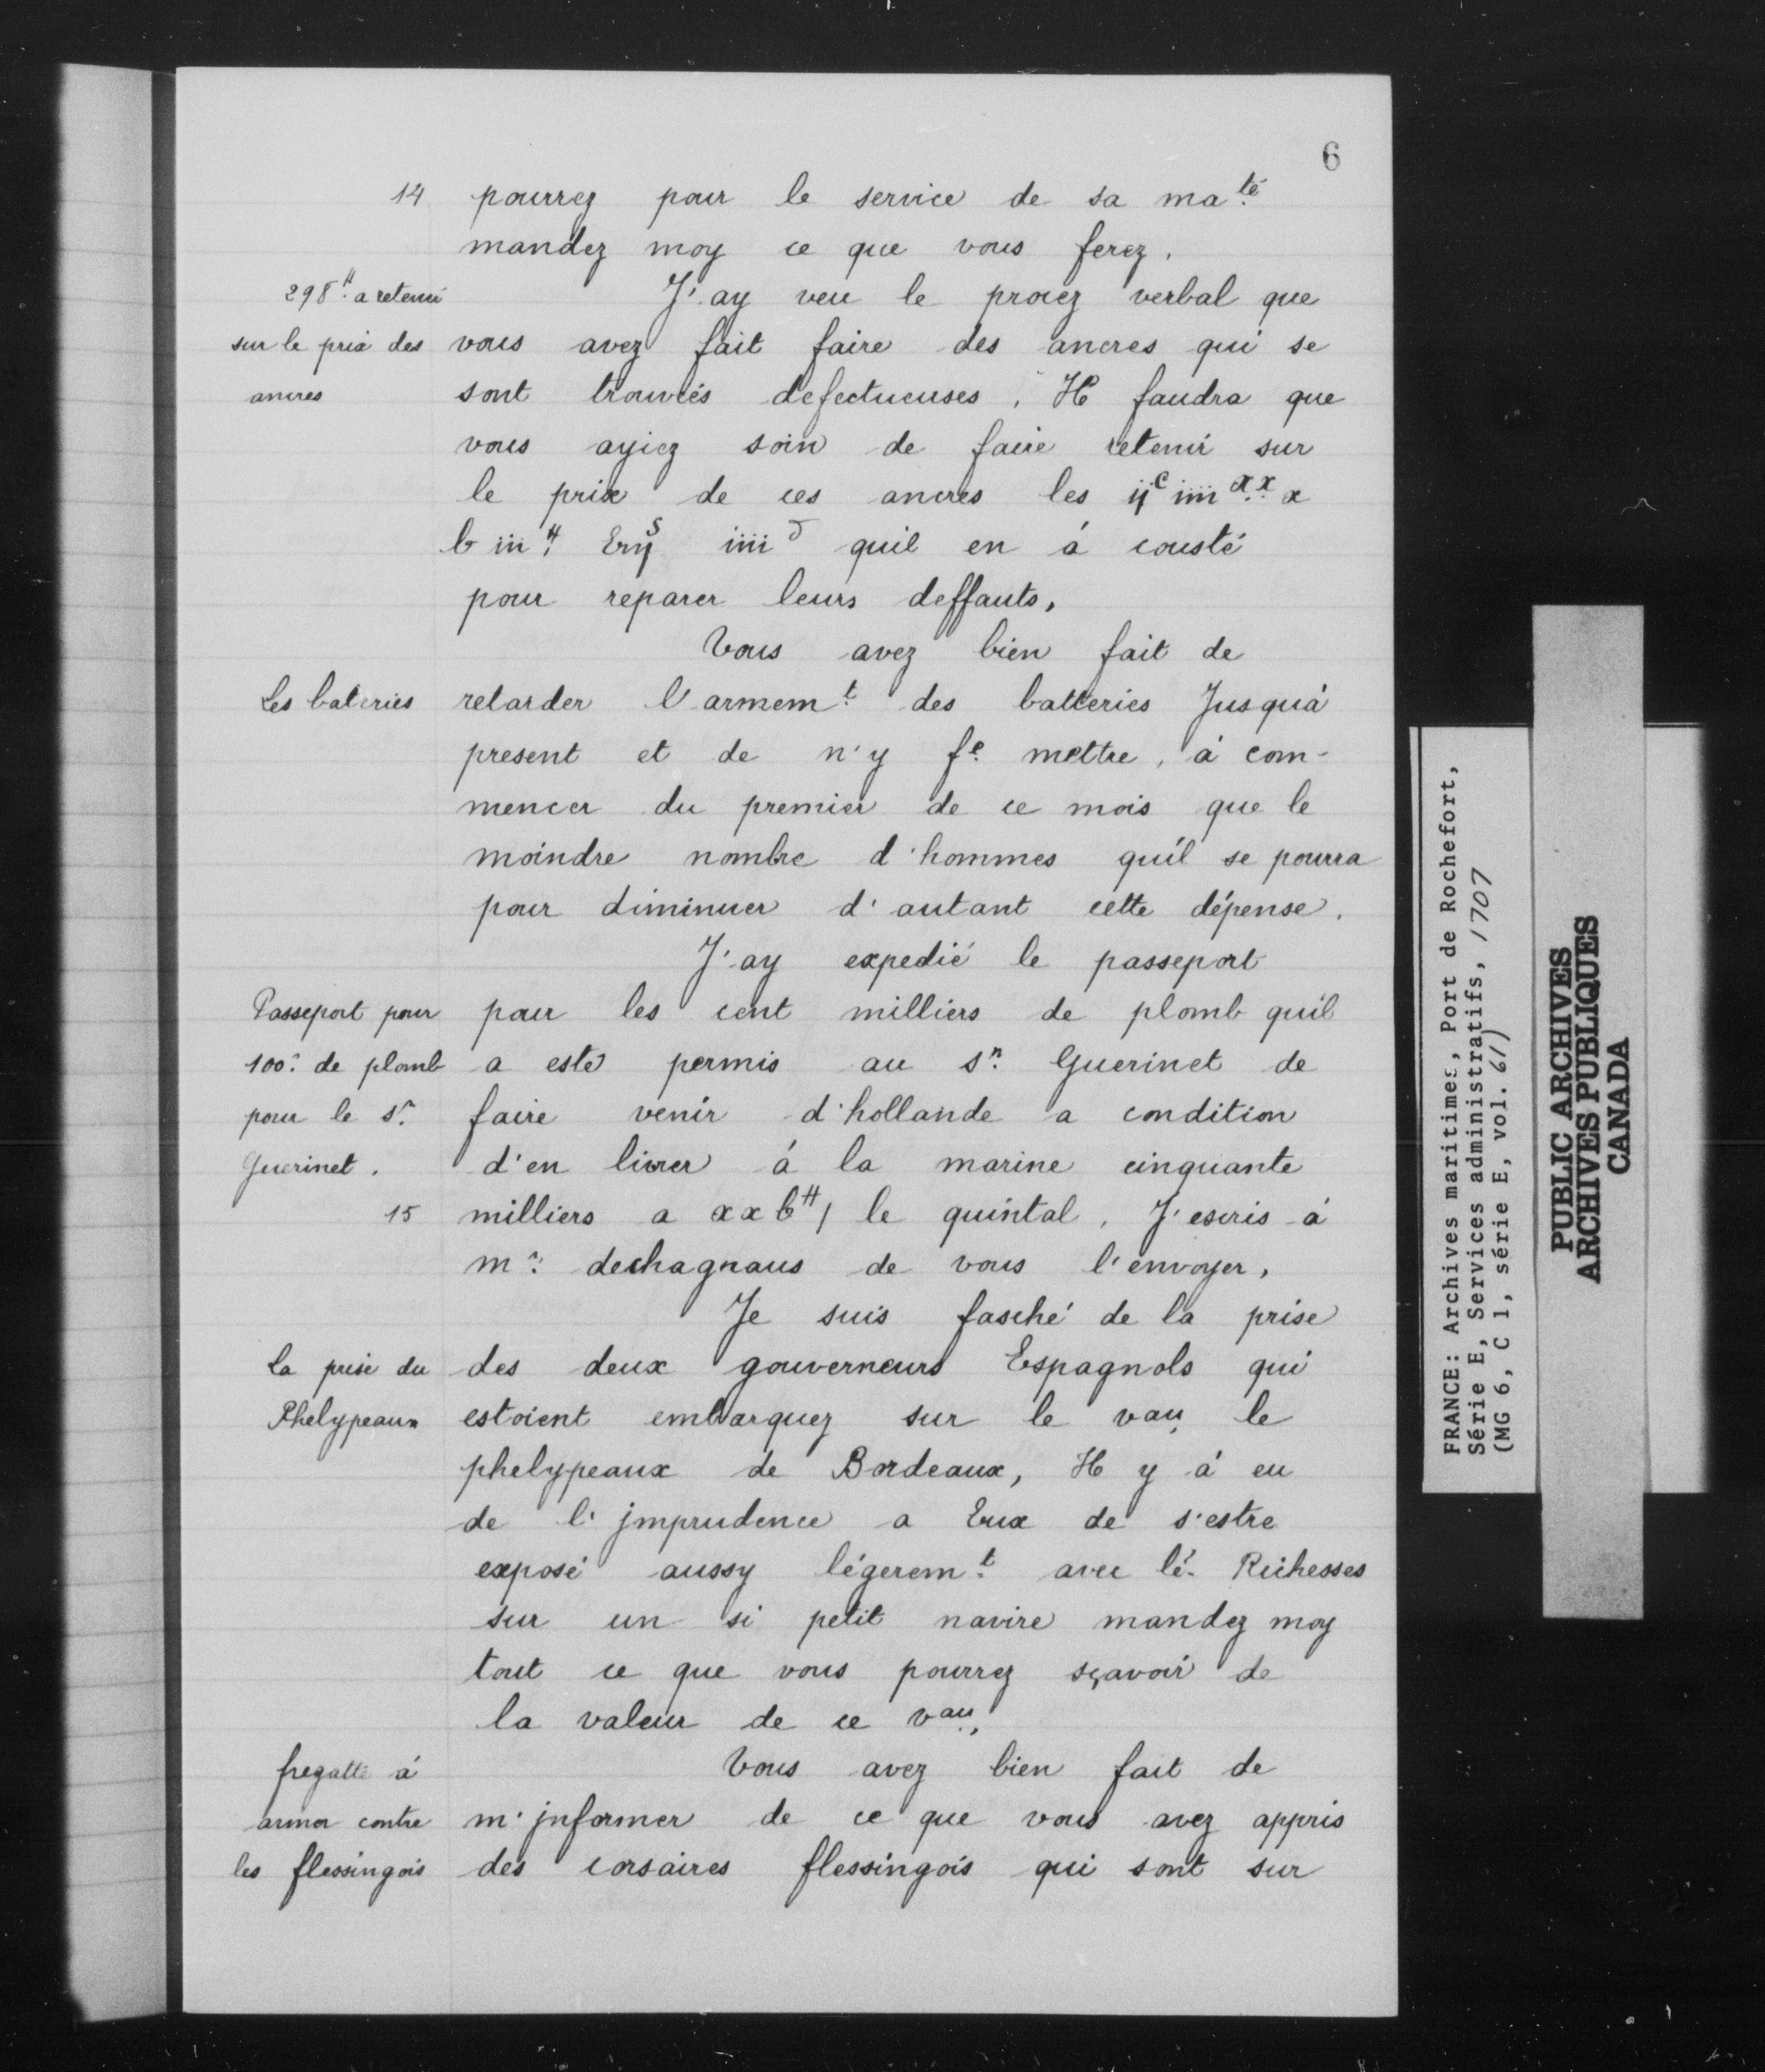 6
14 pourrez pour le service de sa ma.té
mandez moy ce que vous ferez.
298# a retenir J'ay veu le procez verbal que
sur le prix des vous avez fait faire des ancres qui se
ancres sont trouvées defectueuses. Il faudra que
vous ayiez soin de faire retenir sur
le prix de ces ancres les ijc iiii xx x
b iii# iiii d quil en á cousté
pour reparer leurs deffauts,
Vous avez bien fait de
Les bateries retarder l'armem.t des batteries Jusquá
present et de n'y f.e mettre, á com-
mencer du premier de ce mois que le
moindre nombre d'hommes qu'il se pourra
pour diminuer d'autant cette dépense.
J'ay expedié le passeport
Passeport pour pour les cent milliers de plomb quil
100. de plomb a esté permis au s.r Guerinet de
pour le s.r faire venir d'hollande a condition
Guerinet. d'en livrer á la marine cinquante
15 milliers a xxb# / le quintal. J'escris á
m.r dechagnaus de vous l'envoyer,
Je suis fasché de la prise
La prise du des deux gouverneurs Espagnols qui
Phelypeaux estoient embarquez sur le vau, le
phelypeaux de Bordeaux, Il y á eu
de l'jmprudence a Eux de s'estre
exposé aussy légerem.t avec lé. Richesses
sur un si petit navire mandez moy
tout ce que vous pourrez sçavoir de
la valeur de ce vau,
fregatte á Vous avez bien fait de
armer contre m'jnformer de ce que vous avez appris
les flessingois des corsaires flessingois qui sont sur
FRANCE: Archives maritimes, Port de Rochefort,
Série E, Services administratifs, 1707
(MG 6, C 1, série E, vol. 611)
PUBLIC ARCHIVES
ARCHIVES PUBLIQUES
CANADA